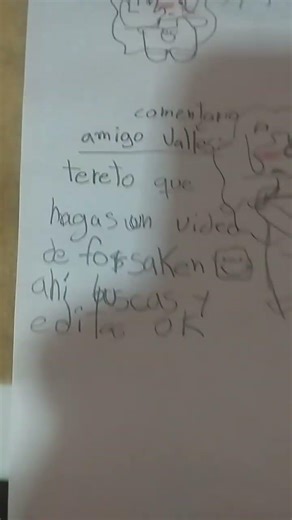 comentario
amigo Valles
tereto que
hagas un video
de forsaken
ahí buscas y
editas ok